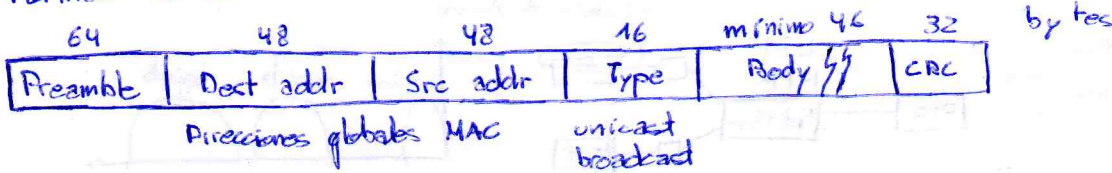 64 48 48 16 mínimo 46 32 bytes
Preamble Dest addr Src addr Type Body CRC
Direcciones globales MAC unicast
broadcast